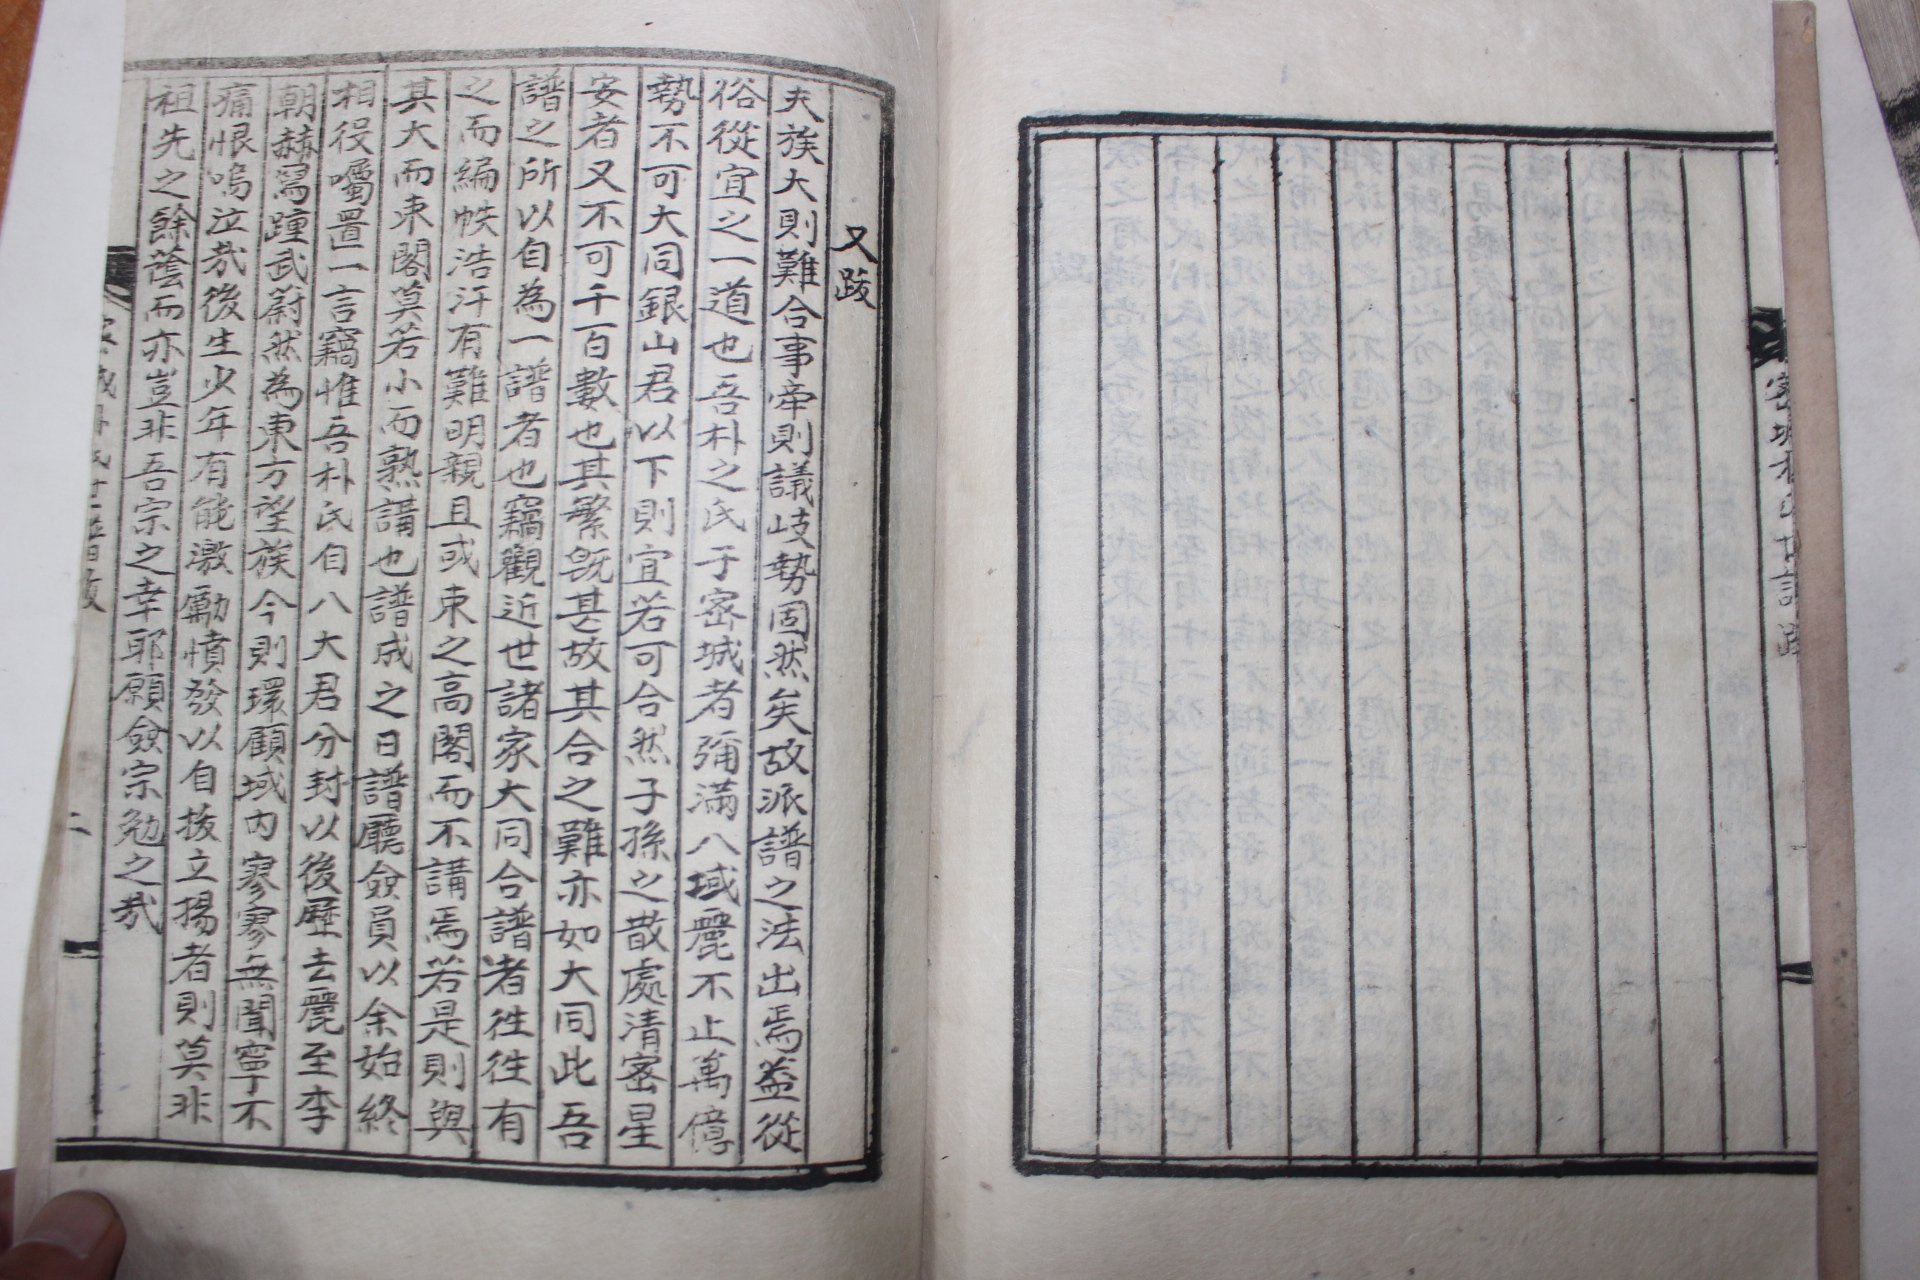 密城朴氏世譜跋
又跋
夫族大則難合事牽則議岐勢固然矣故派譜之法出焉益從
俗從宜之一道也吾朴之氏于密城者彌滿八域麗不止萬億
勢不可大同銀山君以下則宜若可合然子孫之散處清密星
安者又不可千百數也其繁旣甚故其合之難亦如大同此吾
譜之所以自為一譜者也竊觀近世諸家大同合譜者徃徃有
之而編帙浩汗有難明親且或束之高閣而不講焉若是則與
其大而束閣莫若小而熟講也譜成之日譜廳僉員以余始終
相役囑置一言竊惟吾朴氏自八大君分封以後歷去麗至李
朝赫舃踵武蔚然為東方望族今則環顧域內寥寥無聞寧不
痛恨嗚泣哉後生少年有能激勵憤發以自拔立揚者則莫非
祖先之餘蔭而亦豈非吾宗之幸耶願僉宗勉之哉
二